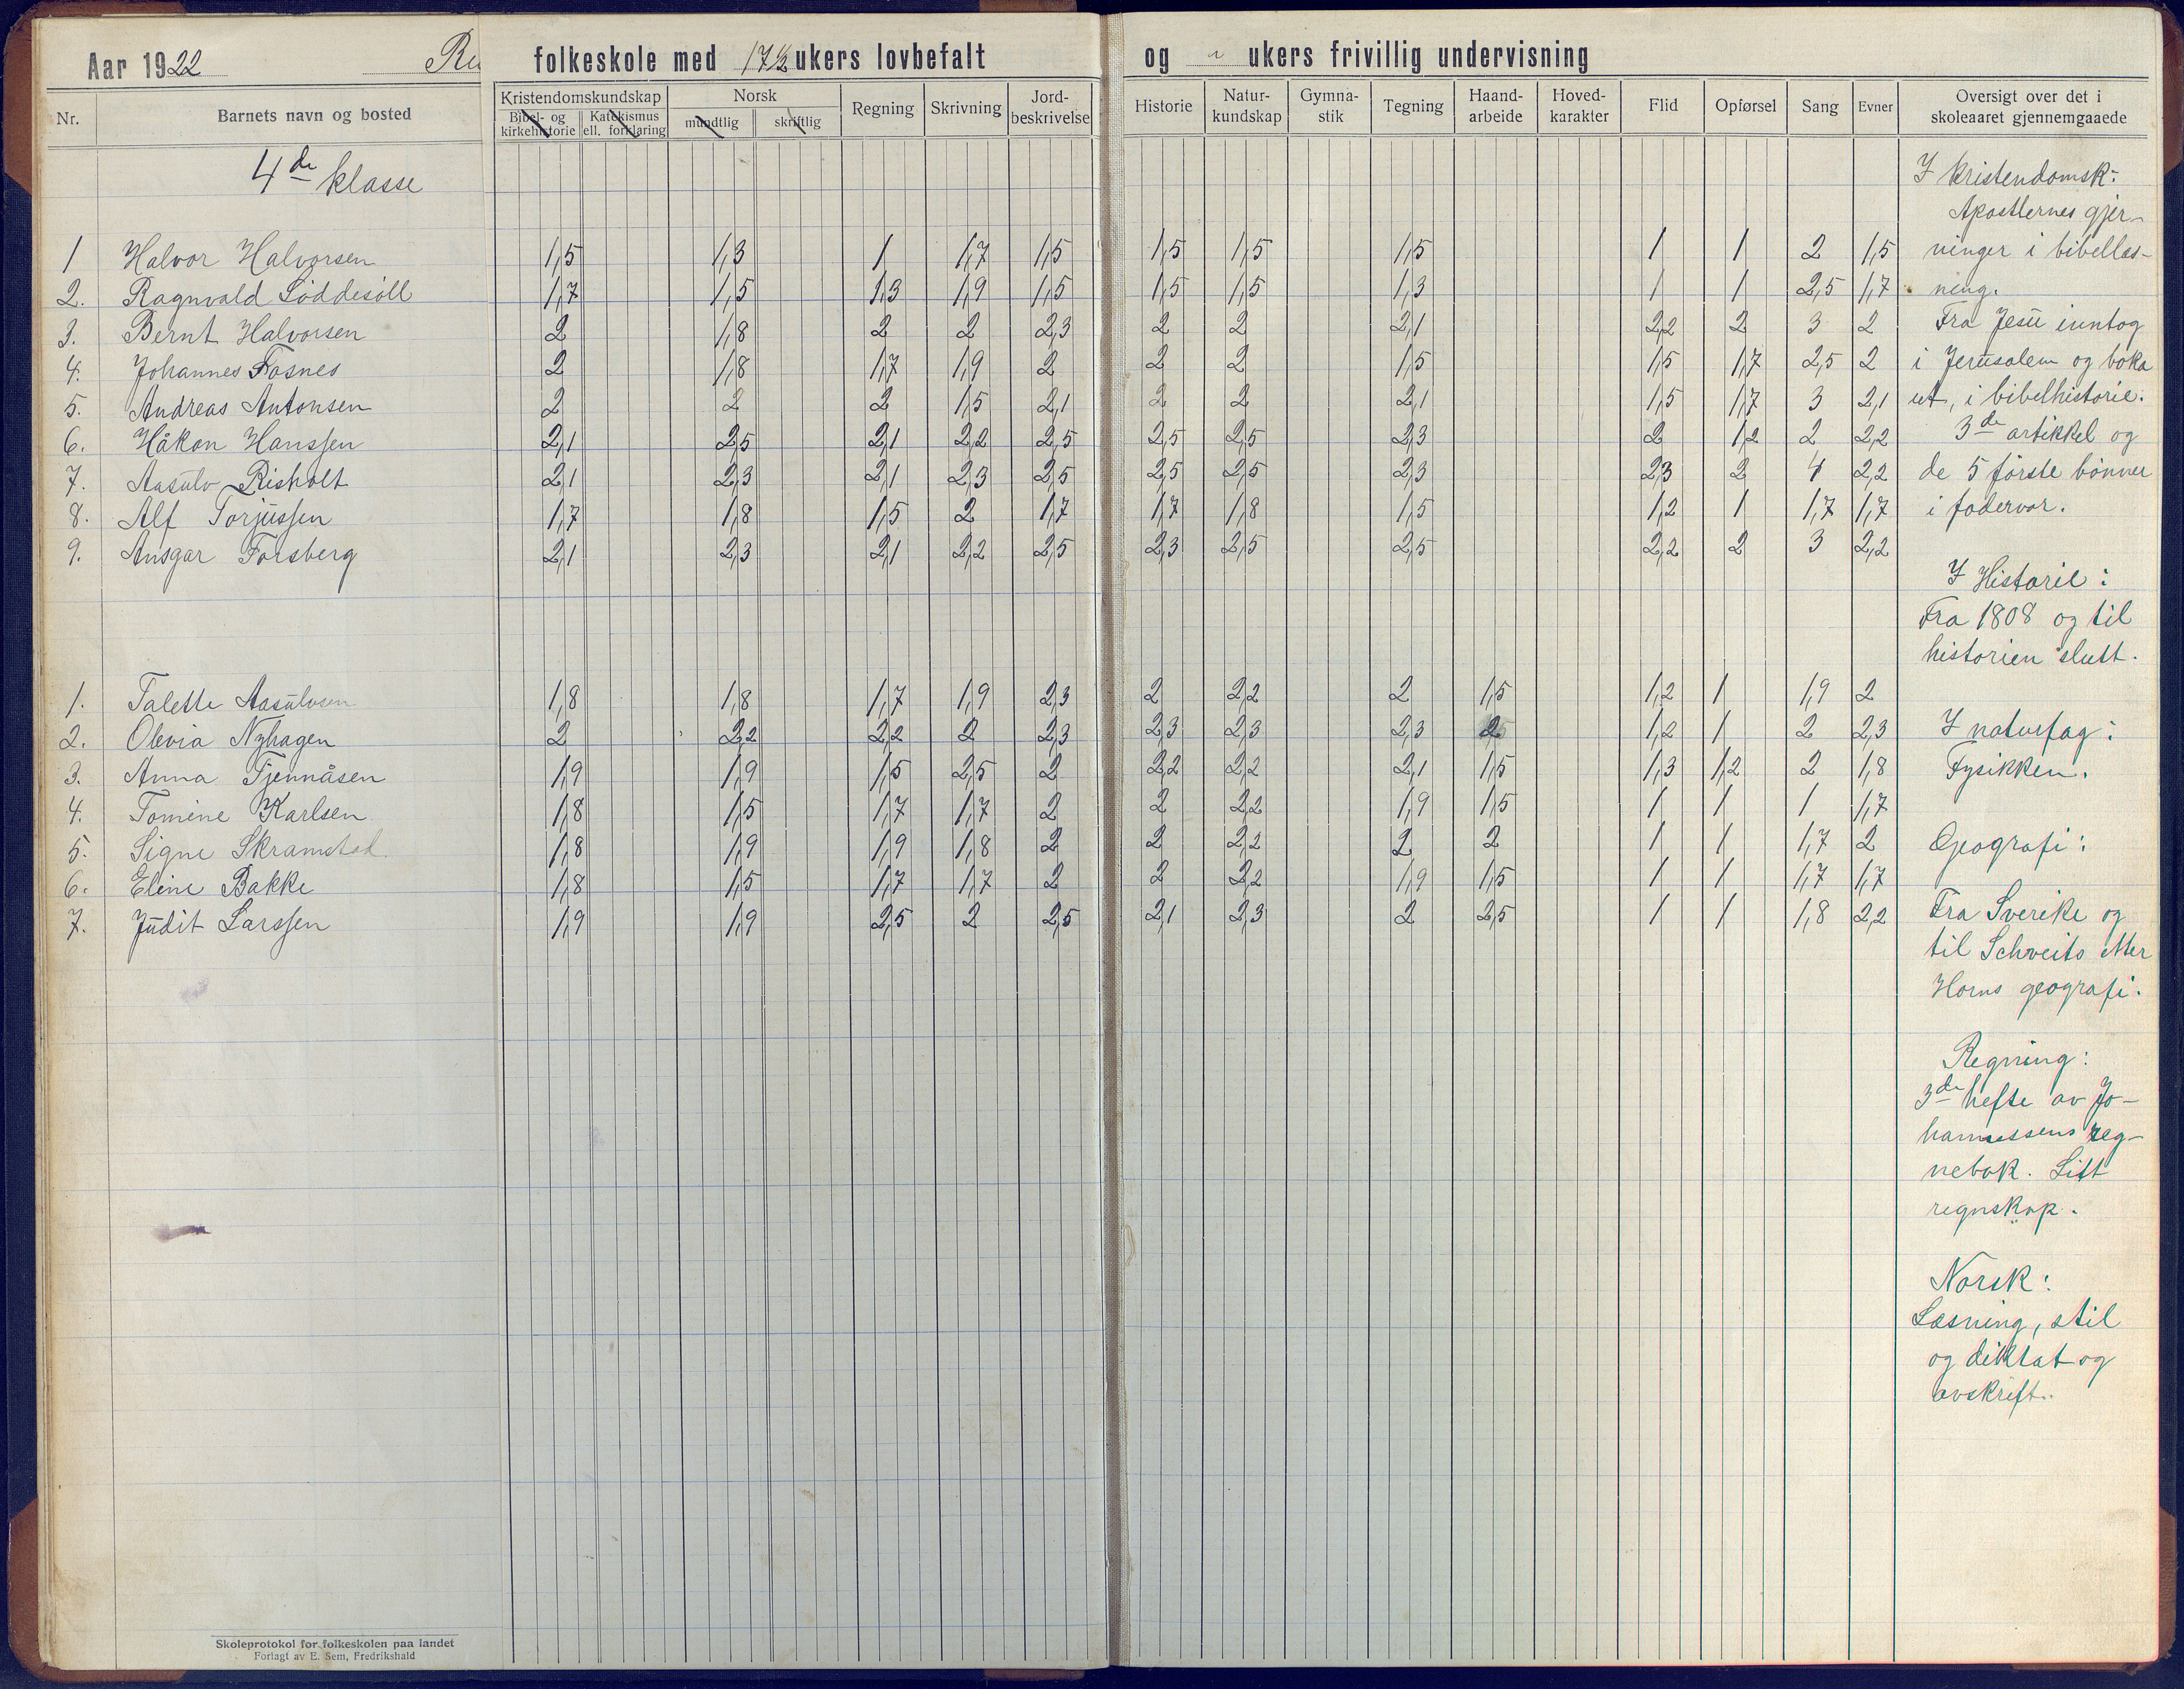 Aar 1922 Ru folkeskole med 17½ ukers lovbefalt og " ukers frivillig undervisning
Nr. Barnets navn og bosted Kristendomskundskap Norsk Regning Skrivning Jord-beskrivelse Historie Natur-kundskap Gymna-stik Tegning Haand-arbeide Hoved-karakter Flid Opførsel Sang Evner Oversigt over det i skoleaaret gjennemgaaede
Bibel- og kirkehistorie Katekismus ell. forklaring mundtlig skriftlig
4de klasse
1 Halvor Halvorsen 1,5 1,3 1 1,7 1,5 1,5 1,5 1,5 1 1 2 1,5
2. Ragnvald Løddesöll 1,7 1,5 1,3 1,9 1,5 1,5 1,5 1,3 1 1 2,5 1,7
3. Bernt Halvorsen 2 1,8 2 2 2,3 2 2 2,1 2,2 2 3 2
4. Johannes Fosnes 2 1,8 1,7 1,9 2 2 2 1,5 1,5 1,7 2,5 2
5. Andreas Antonsen 2 2 2 1,5 2,1 2 2 2,1 1,5 1,7 3 2,1
6. Håkon Hanssen 2,1 2,5 2,1 2,2 2,5 2,5 2,5 2,3 2 1,2 2 2,2
7. Aasulv Risholt 2,1 2,3 2,1 2,3 2,5 2,5 2,5 2,3 2,3 2 4 2,2
8. Alf Torjussen 1,7 1,8 1,5 2 1,7 1,7 1,8 1,5 1,2 1 1,7 1,7
9. Ansgar Forsberg 2,1 2,3 2,1 2,2 2,5 2,3 2,5 2,5 2,2 2 3 2,2
1. Talette Aasulvsen 1,8 1,8 1,7 1,9 2,3 2 2,2 2 1,5 1,2 1 1,9 2
2. Olevia Nyhagen 2 2,2 2,2 2 2,3 2,3 2,3 2,3 2 1,2 1 2 2,3
3. Anna Tjennåsen 1,9 1,9 1,5 2,5 2 2,2 2,2 2,1 1,5 1,3 1,2 2 1,8
4. Tomine Karlsen 1,8 1,5 1,7 1,7 2 2 2,2 1,9 1,5 1 1 1 1,7
5. Signe Skramstad 1,8 1,9 1,9 1,8 2 2 2,2 2 2 1 1 1,7 2
6. Eline Bakke 1,8 1,5 1,7 1,7 2 2 2,2 1,9 1,5 1 1 1,7 1,7
7. Judit Larssen 1,9 1,9 2,5 2 2,5 2,1 2,3 2 2,5 1 1 1,8 2,2
I kristendomsk:
Apostlernes gjer-
ninger i bibellæs-
ning.
Fra Jesu inntog
i Jerusalem og boka
ut, i bibelhistorie.
3de artikkel og
de 5 første bønner
i fadervor.
I Historie:
Fra 1808 og til
historien slutt.
I naturfag:
Fysikken.
Geografi:
Fra Sverike og
til Schweits etter
Horns geografi.
Regning:
3de hefte av Jo-
hannessens reg-
nebok. Litt
regnskap.
Norsk:
Læsning, stil
og diktat og
avskrift.
Skoleprotokol for folkeskolen paa landet
Forlagt av E. Sem, Fredrikshald